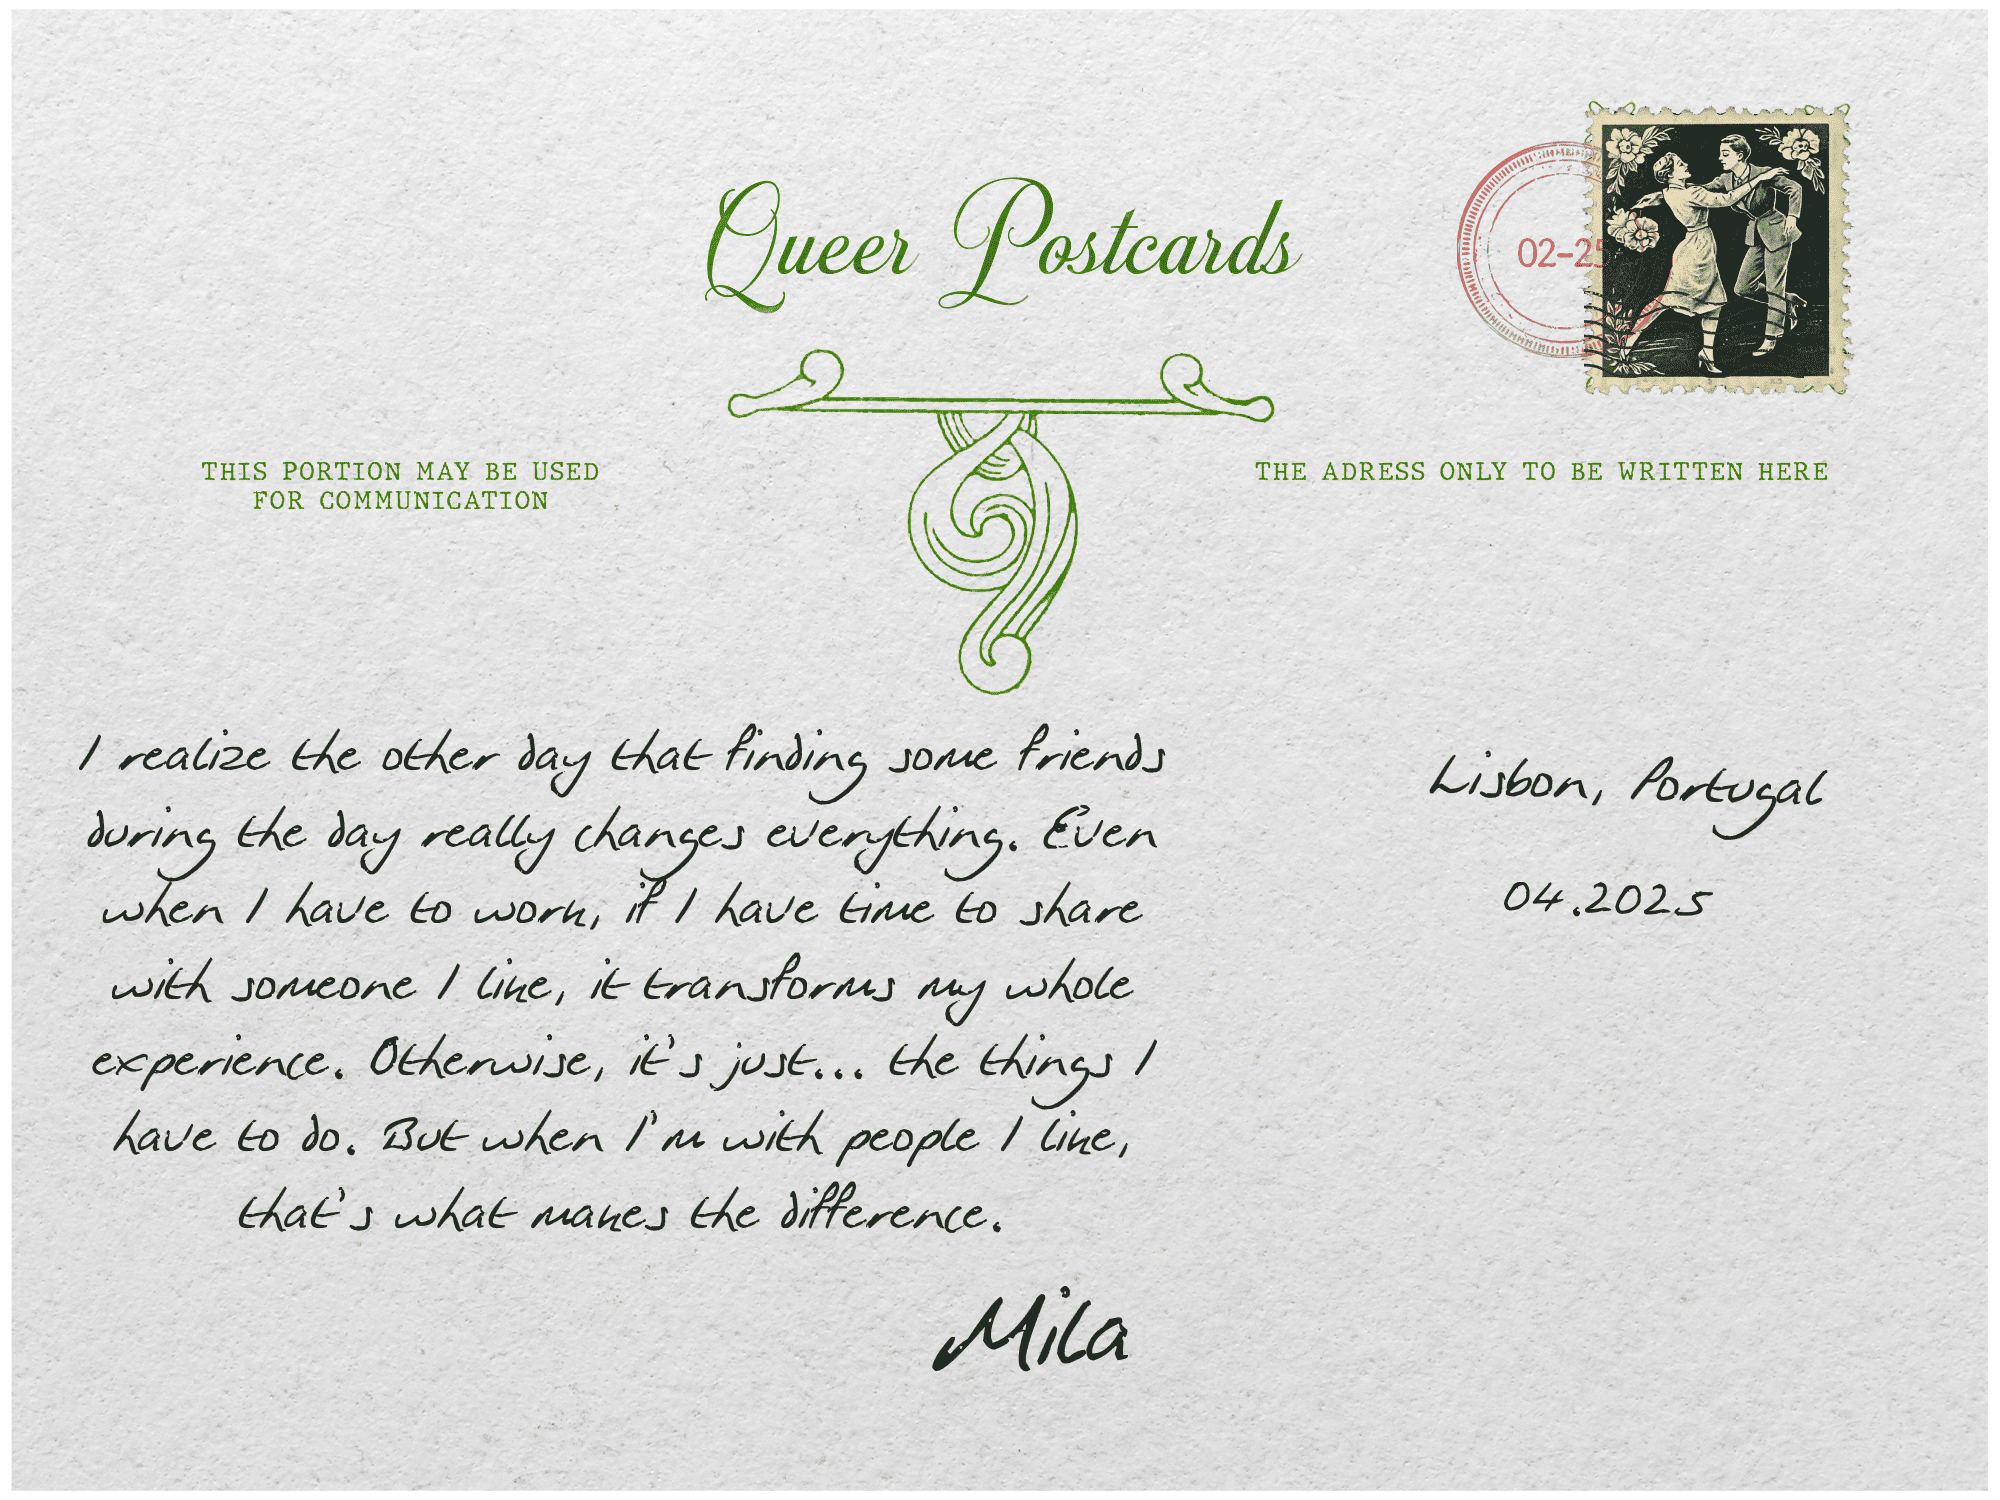 Queer Postcards
02-25
THIS PORTION MAY BE USED
FOR COMMUNICATION
THE ADRESS ONLY TO BE WRITTEN HERE
I realize the other day that finding some friends
during the day really changes everything. Even
when I have to work, if I have time to share
with someone I like, it transforms my whole
experience. Otherwise, it's just... the things I
have to do. But when I'm with people I like,
that's what makes the difference.
Mila
Lisbon, Portugal
04.2025